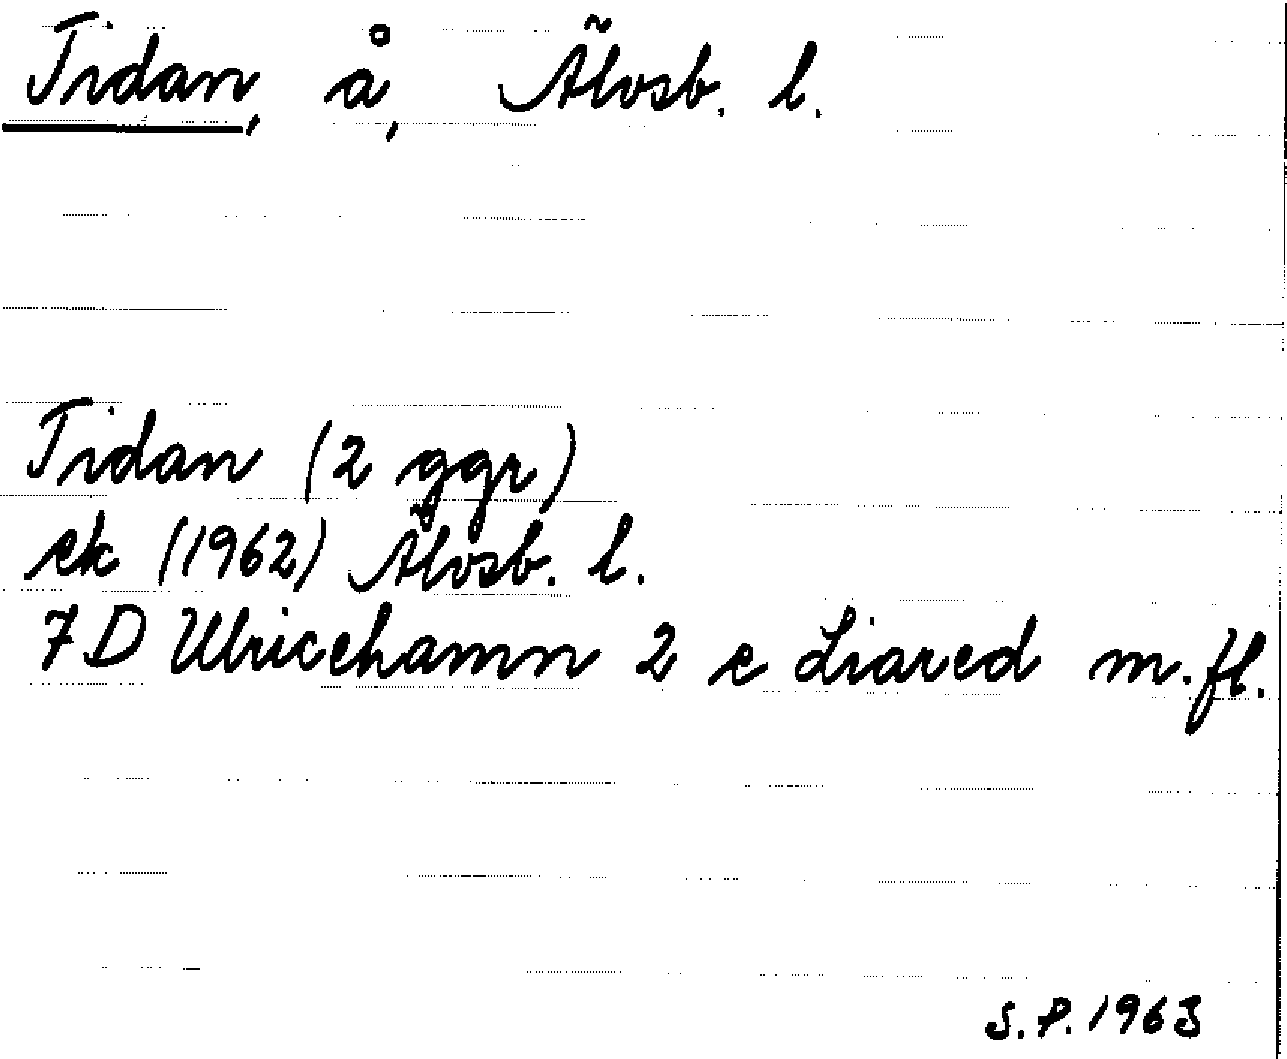 Tidan, å, Älvsb. l.
Tidan (2 ggr)
ek (1962) Älvsb. l.
7D Ulricehamn 2 e Liared m.fl.
S.P. 1963